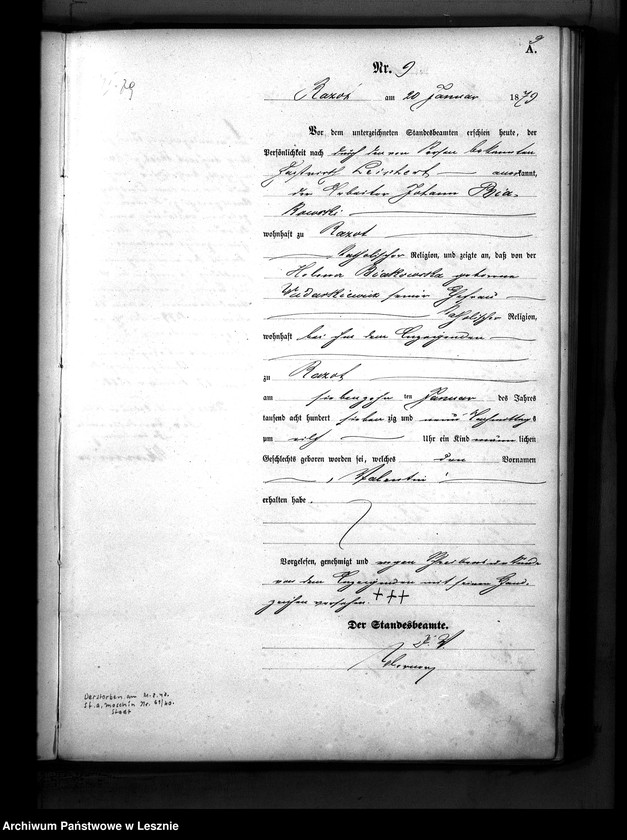 9
A.
Nr. 9
Razot am 20 Januar 1879
Vor dem unterzeichneten Standesbeamten erschien heute, der
Persönlichkeit nach durch den von Person bekannten
Gastwirth anerkannt,
der Arbeiter Johann Bia-
kowski
wohnhaft zu Razot
katholischer Religion, und zeigte an, daß von der
Helena Biakowska geborene
seiner Ehefrau
katholischer Religion,
wohnhaft bei ihm dem Anzeigenden
zu Razot
am siebenzehn ten Januar des Jahres
tausend acht hundert sieben zig und neun Nachmittags
um eilf Uhr ein Kind männlichen
Geschlechts geboren worden sei, welches den Vornamen
Valentin
erhalten habe.
Vorgelesen, genehmigt und wegen Schreibensunkunde
von dem Anzeigenden mit seinen Hand-
zeichen versehen. +++
Der Standesbeamte.
Verstorben am
St. A. Moschin Nr. 61/40.
Stadt
Archiwum Państwowe w Lesznie